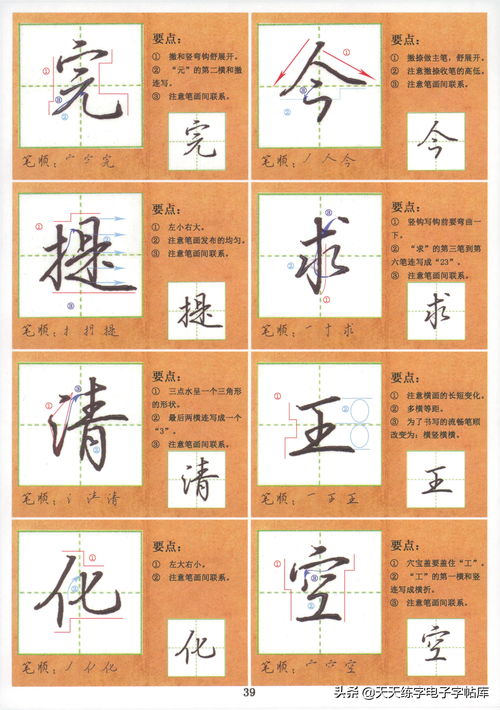 完
要点：
① 撇和竖弯钩舒展开。
② “元”的第二横和撇
连写。
③ 注意笔画间联系。
完
笔顺：宀 完
今
要点：
① 撇捺做主笔，舒展开。
② 注意撇捺收笔的高低。
③ 注意笔画间联系。
今
笔顺：丿 人 今
提
要点：
① 左小右大。
② 注意笔画发布的均匀。
③ 注意笔画间联系。
提
笔顺：扌 担 提
求
要点：
① 竖钩写钩前要弯曲一
下。
② “求”的第三笔到第
六笔连写成“23”。
③ 注意笔画间联系。
求
笔顺：一 寸 求
清
要点：
① 三点水呈一个三角形
的形状。
② 最后两横连写成一个
“3”。
③ 注意笔画间联系。
清
笔顺：氵 清
王
要点：
① 注意横画的长短变化。
② 多横等距。
③ 为了书写的流畅笔顺
改变为：横竖横横。
王
笔顺：一 王
化
要点：
① 左大右小。
② 注意笔画间联系。
化
笔顺：丿 亻 化
空
要点：
① 穴宝盖要盖住“工”。
② “工”的第一横和竖
连写成横折。
③ 注意笔画间联系。
空
笔顺：宀 空
39
头条@天天练字电子字帖库